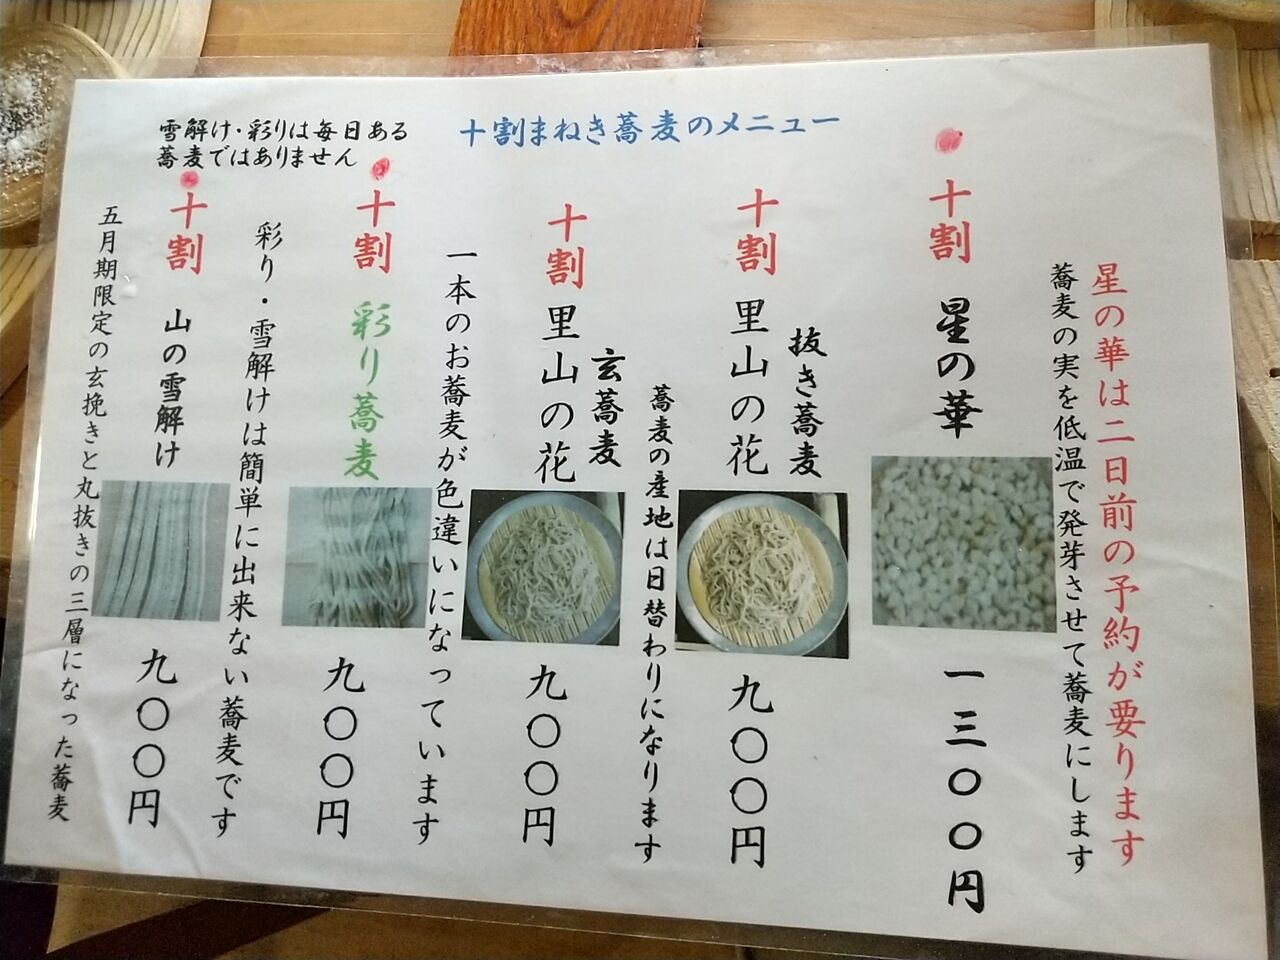 十割まねき蕎麦のメニュー
星の華は二日前の予約が要ります
蕎麦の実を低温で発芽させて蕎麦にします
十割 星の華
一三〇〇円
抜き蕎麦
十割 里山の花
九〇〇円
蕎麦の産地は日替わりになります
玄蕎麦
十割 里山の花
九〇〇円
一本のお蕎麦が色違いになっています
十割 彩り蕎麦
九〇〇円
彩り・雪解けは簡単に出来ない蕎麦です
雪解け・彩りは毎日ある
蕎麦ではありません
十割 山の雪解け
九〇〇円
五月期限定の玄挽きと丸抜きの三層になった蕎麦